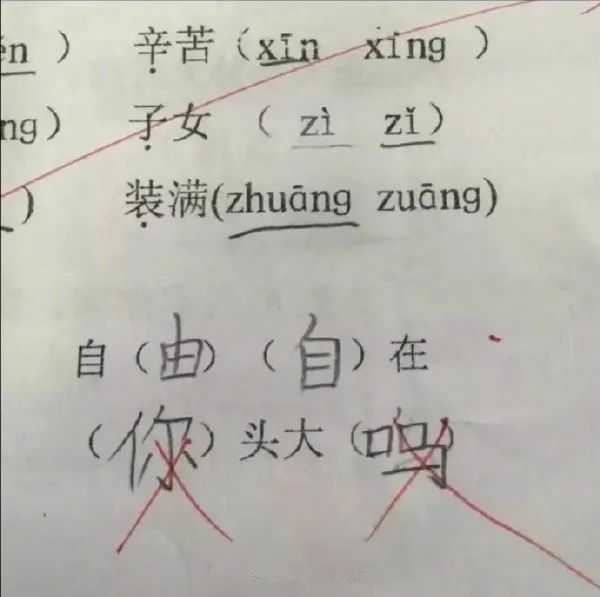 ěn ） 辛苦（xīn xīng ）
ng） 子女 （ zì zǐ）
) 装满(zhuāng zuāng)
自（由）（自）在
（你）头大（吗）